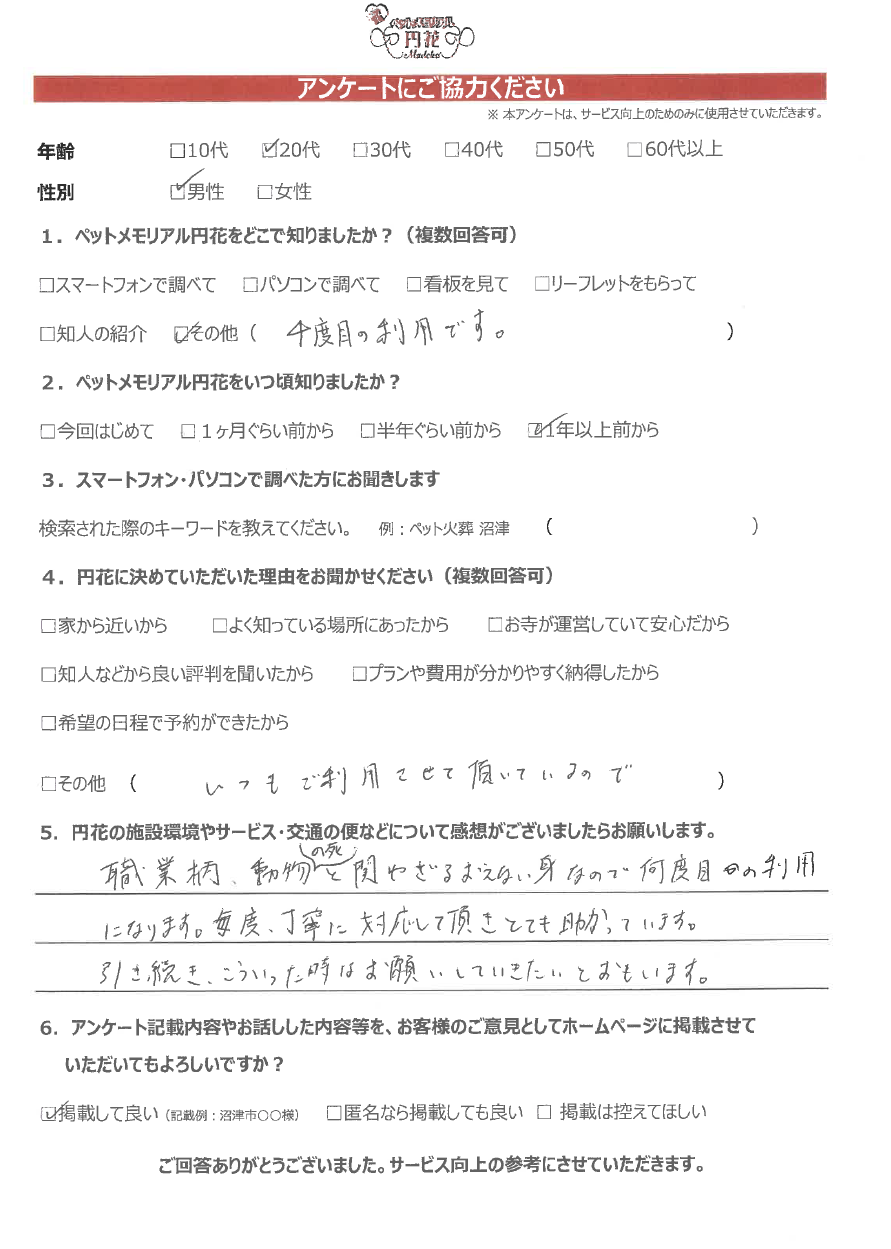 ペットメモリアル
円花
Madoka
アンケートにご協力ください
※ 本アンケートは、サービス向上のためのみに使用させていただきます。
年齢 □10代 ☑20代 □30代 □40代 □50代 □60代以上
性別 ☑男性 □女性
1．ペットメモリアル円花をどこで知りましたか？（複数回答可）
□スマートフォンで調べて □パソコンで調べて □看板を見て □リーフレットをもらって
□知人の紹介 ☑その他（ 度目の利用です。 ）
2．ペットメモリアル円花をいつ頃知りましたか？
□今回はじめて □1ヶ月ぐらい前から □半年ぐらい前から ☑1年以上前から
3．スマートフォン・パソコンで調べた方にお聞きします
検索された際のキーワードを教えてください。 例：ペット火葬 沼津 （ ）
4．円花に決めていただいた理由をお聞かせください（複数回答可）
□家から近いから □よく知っている場所にあったから □お寺が運営していて安心だから
□知人などから良い評判を聞いたから □プランや費用が分かりやすく納得したから
□希望の日程で予約ができたから
□その他 （ いつもご利用させて頂いているので ）
5．円花の施設環境やサービス・交通の便などについて感想がございましたらお願いします。
職業柄、動物の死と関わざるおえない身なので何度目かの利用
になります。毎度、丁寧に対応して頂きとても助かっています。
引き続き、こういった時はお願いしていきたいとおもいます。
6．アンケート記載内容やお話しした内容等を、お客様のご意見としてホームページに掲載させて
いただいてもよろしいですか？
☑掲載して良い（記載例：沼津市〇〇様） □匿名なら掲載しても良い □ 掲載は控えてほしい
ご回答ありがとうございました。サービス向上の参考にさせていただきます。